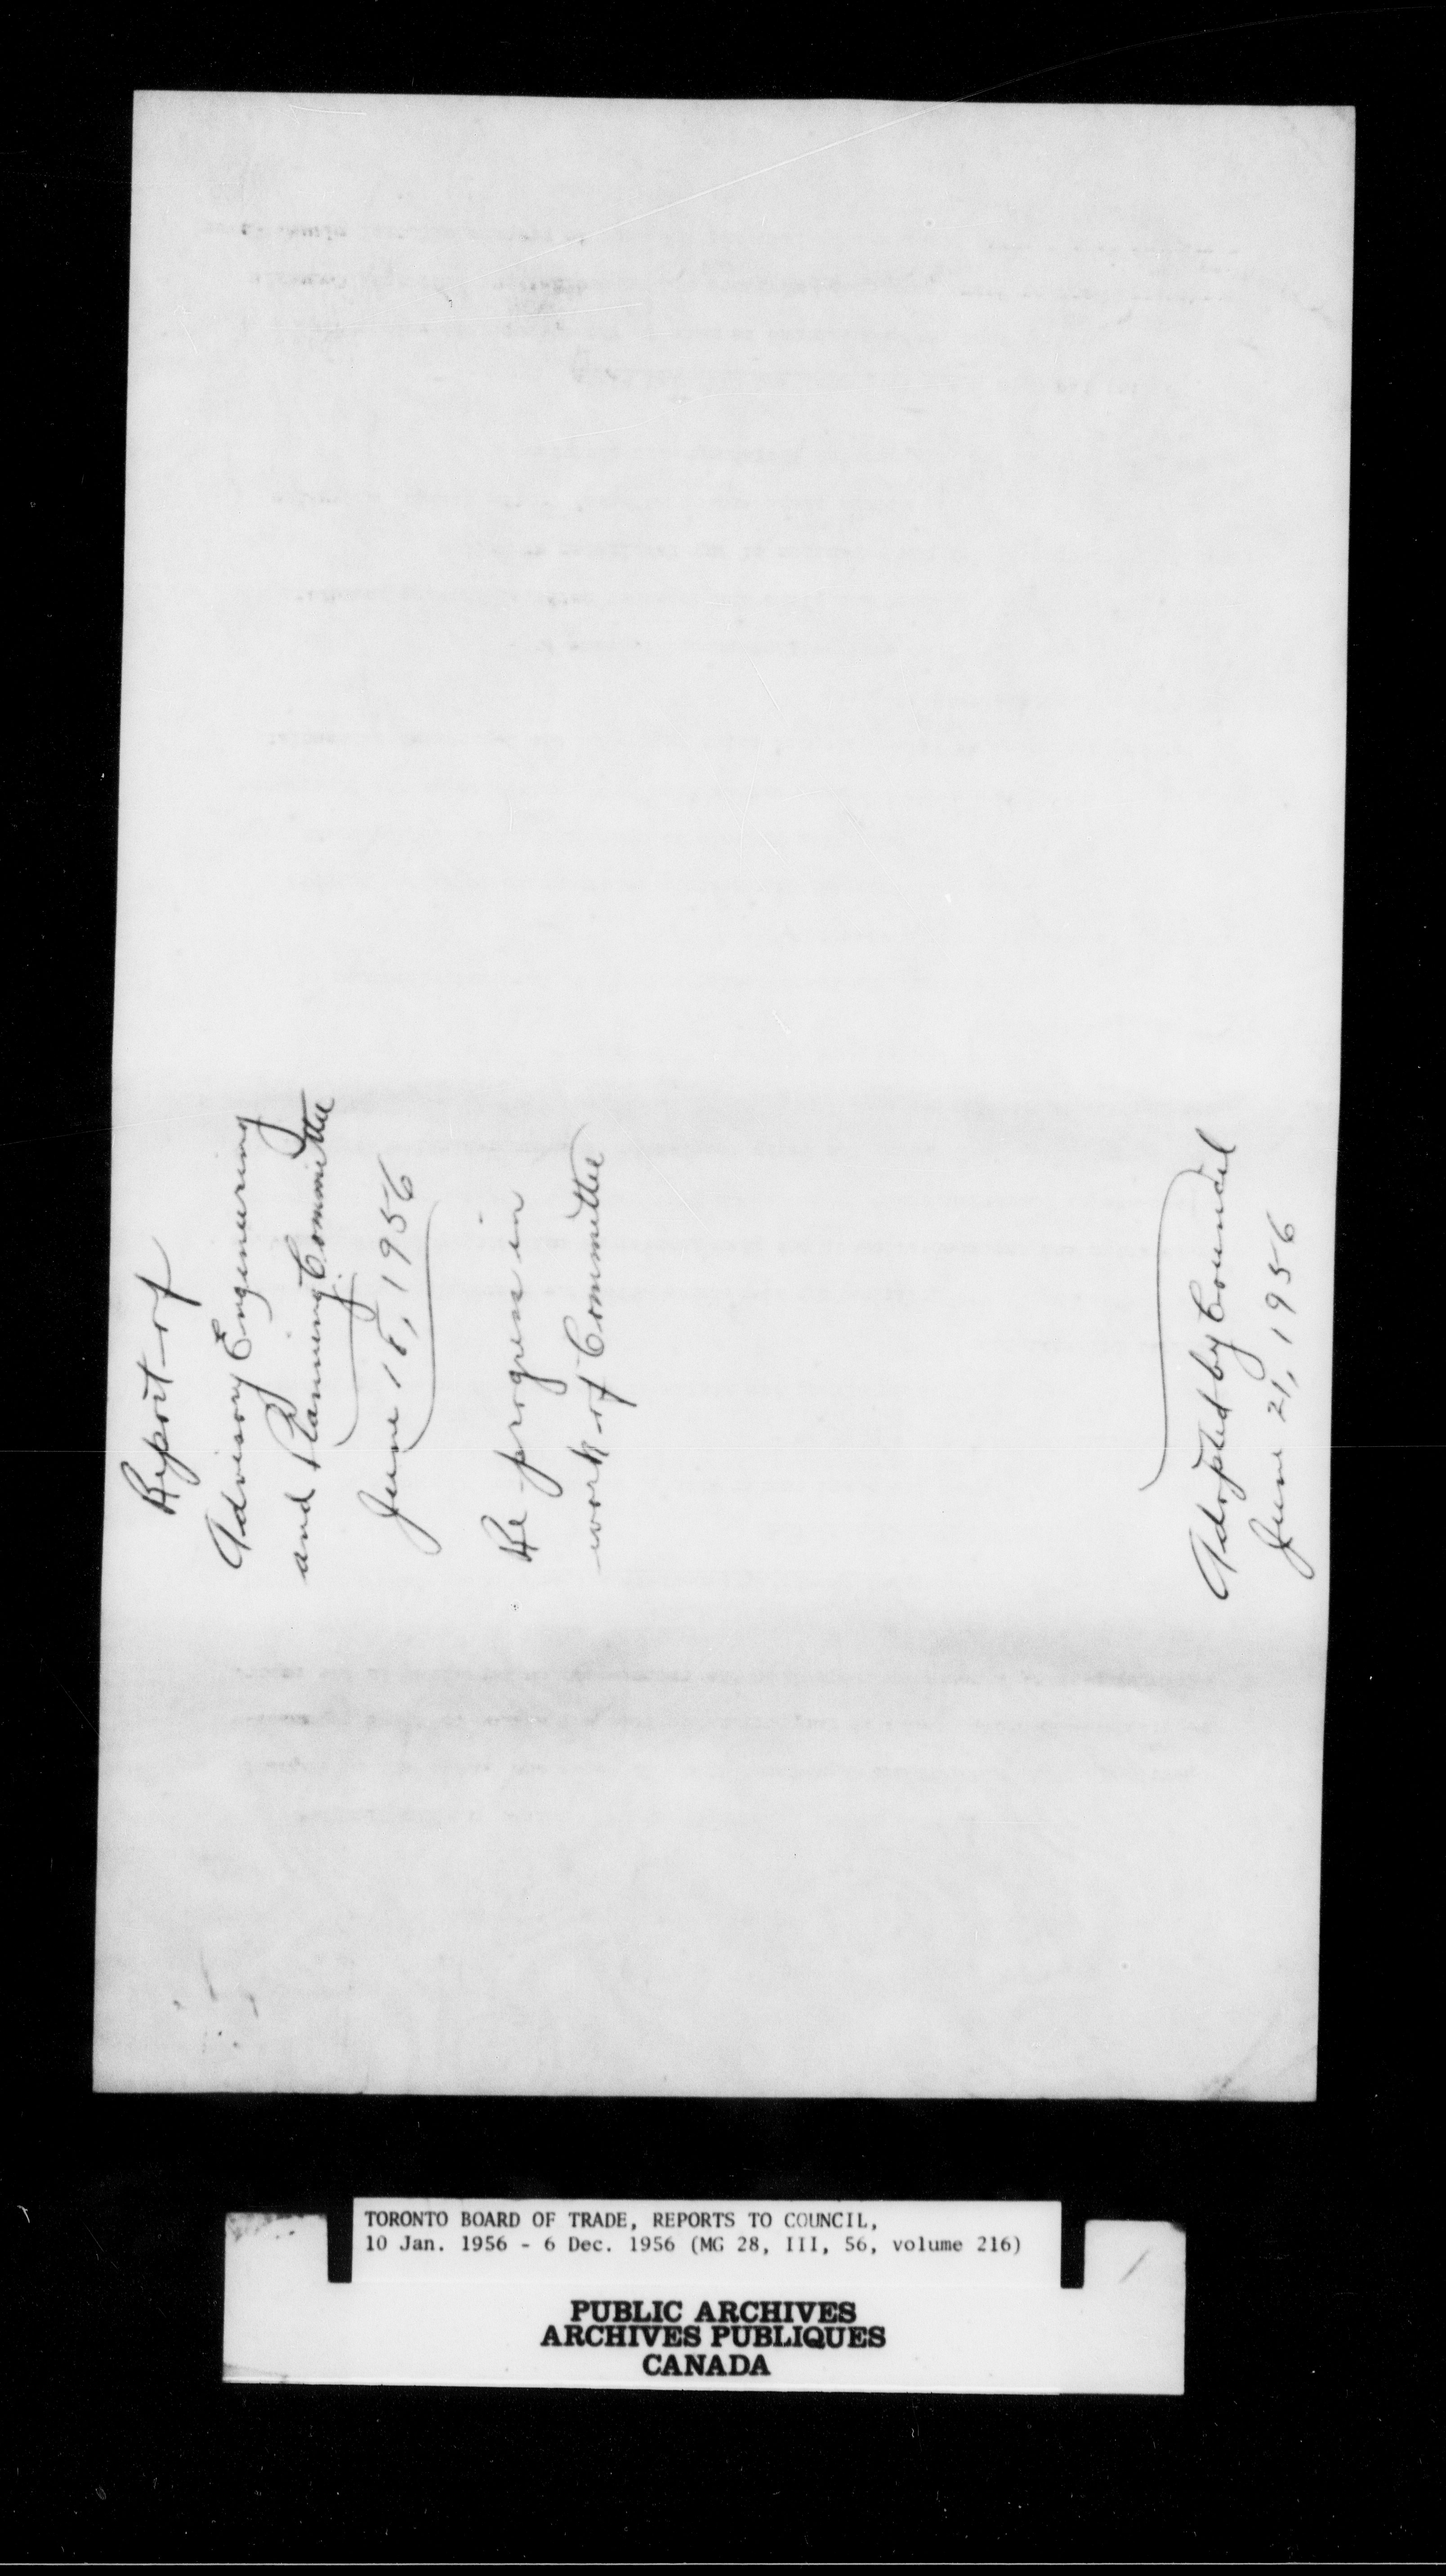 Report of
Advisory Engineering
and Planning Committee
June 18, 1956
Re progress in
work of Committee
Adopted by Council
June 21, 1956
TORONTO BOARD OF TRADE, REPORTS TO COUNCIL,
10 Jan. 1956 - 6 Dec. 1956 (MG 28, III, 56, volume 216)
PUBLIC ARCHIVES
ARCHIVES PUBLIQUES
CANADA